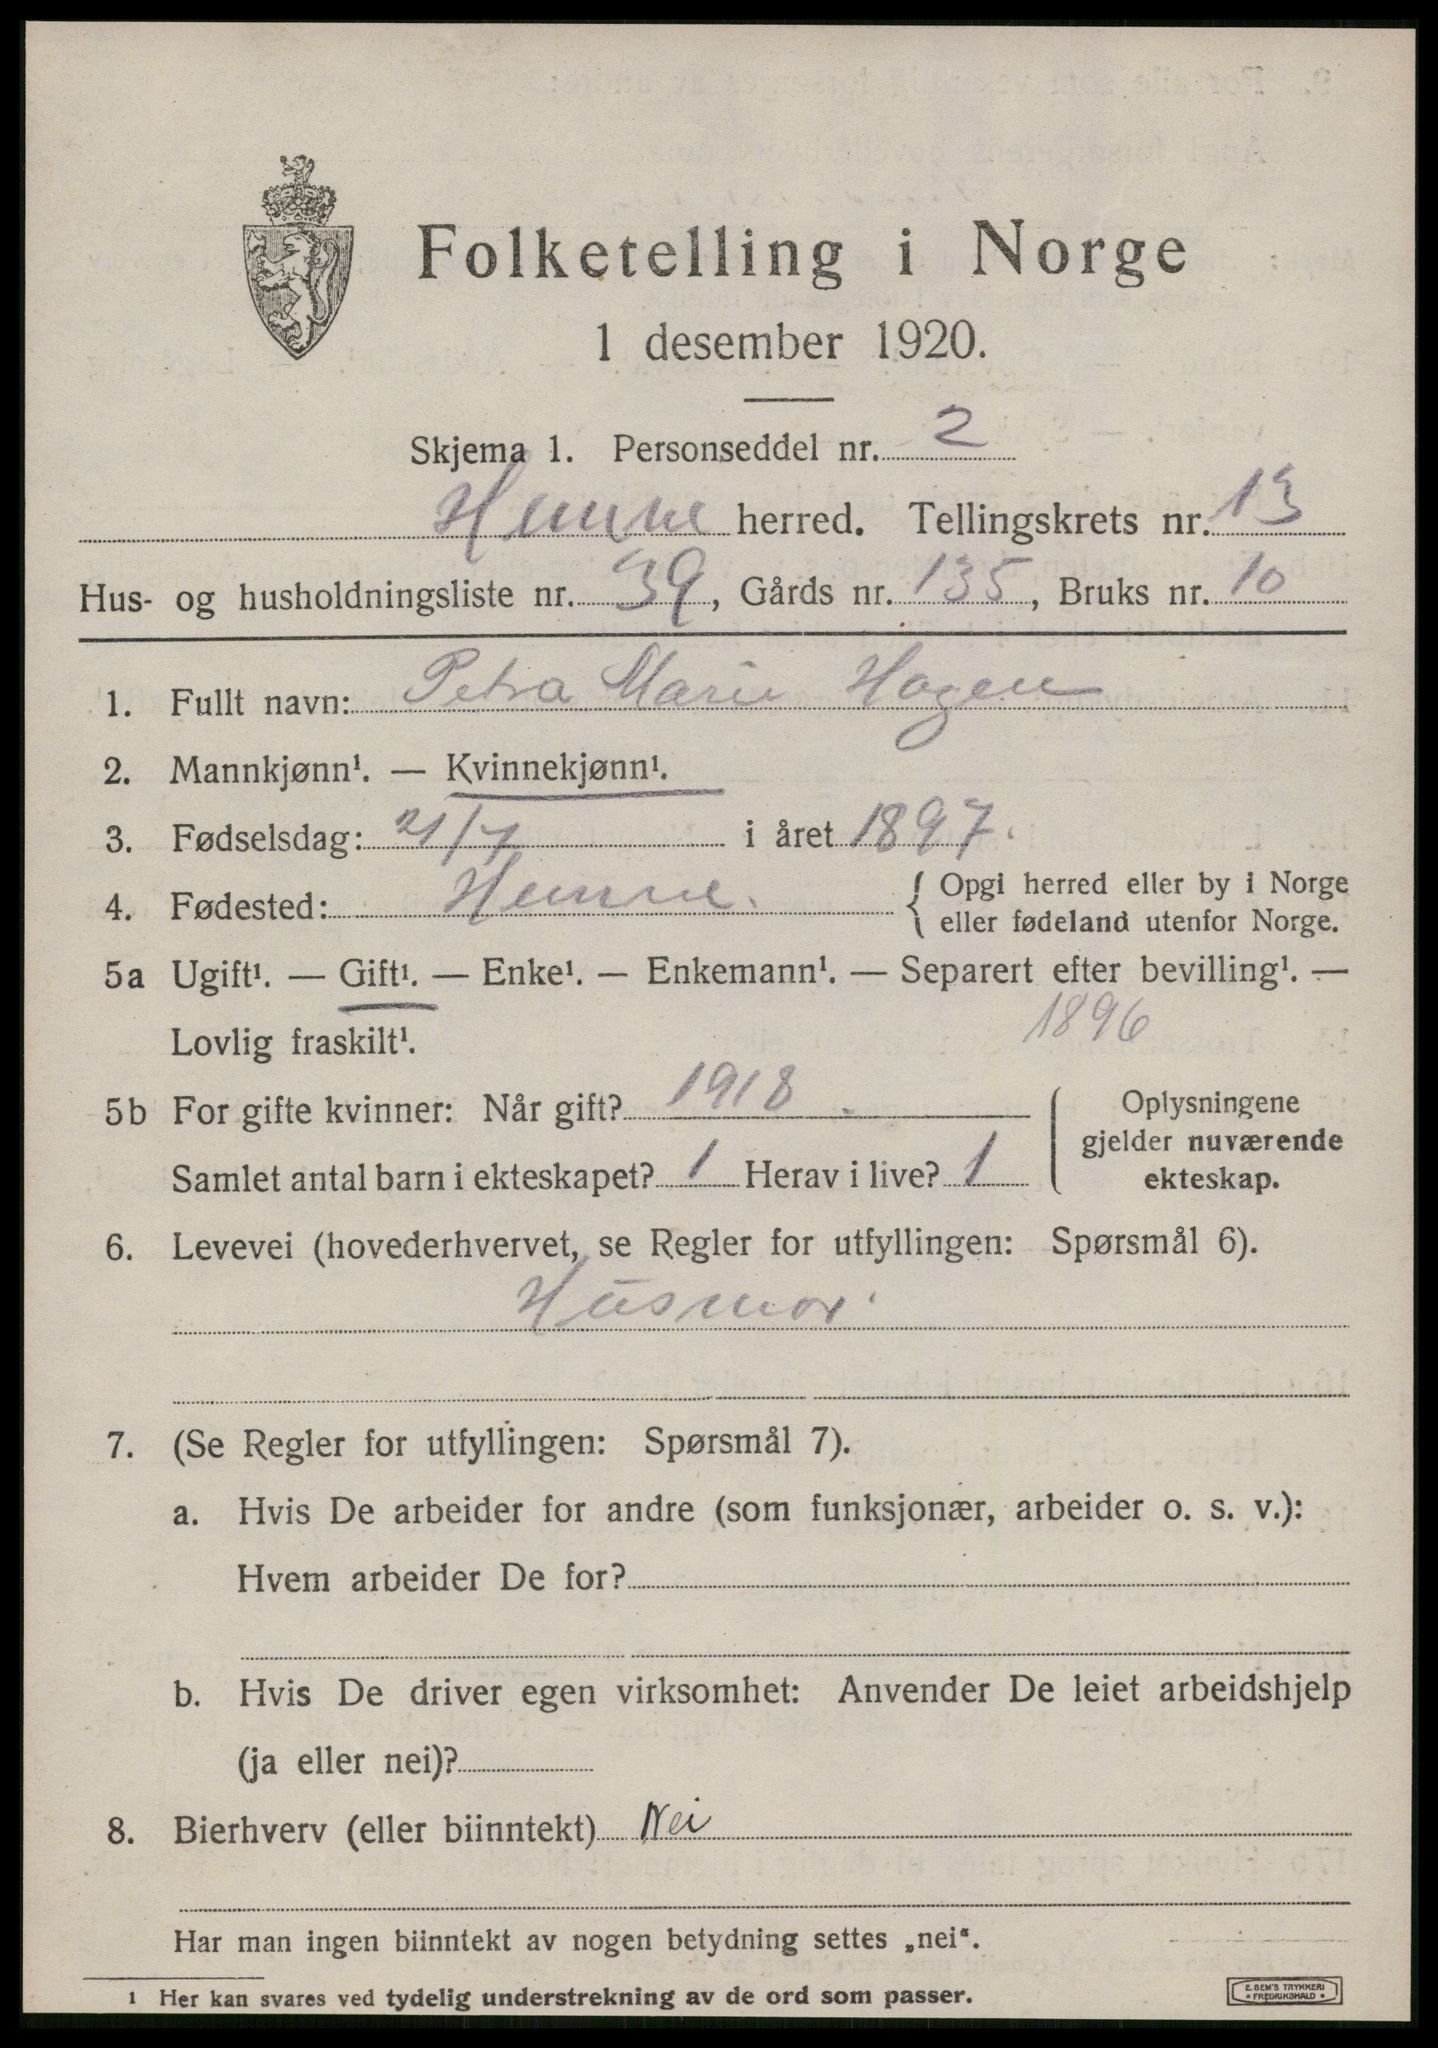 Folketelling i Norge
1 desember 1920.
Skjema 1. Personseddel nr. 2
Hemne herred. Tellingskrets nr. 13
Hus- og husholdningsliste nr. 39, Gårds nr. 135, Bruks nr. 10
1. Fullt navn: Petra Marie Hagen
2. Mannkjønn¹. — Kvinnekjønn¹.
3. Fødselsdag: 21/7 i året 1897.
4. Fødested: Hemne. { Opgi herred eller by i Norge
eller fødeland utenfor Norge.
5a Ugift¹. — Gift¹. — Enke¹. — Enkemann¹. — Separert efter bevilling¹. —
Lovlig fraskilt¹. 1896
5b For gifte kvinner: Når gift? 1918.
Samlet antal barn i ekteskapet? 1 Herav i live? 1
Oplysningene
gjelder nuværende
ekteskap.
6. Levevei (hovederhvervet, se Regler for utfyllingen: Spørsmål 6).
Husmor.
7. (Se Regler for utfyllingen: Spørsmål 7).
a. Hvis De arbeider for andre (som funksjonær, arbeider o. s. v.):
Hvem arbeider De for?
b. Hvis De driver egen virksomhet: Anvender De leiet arbeidshjelp
(ja eller nei)?
8. Bierhverv (eller biinntekt) Nei
Har man ingen biinntekt av nogen betydning settes „nei“.
1 Her kan svares ved tydelig understrekning av de ord som passer.
E. SEM'S TRYKKERI
• FREDRIKSHALD •